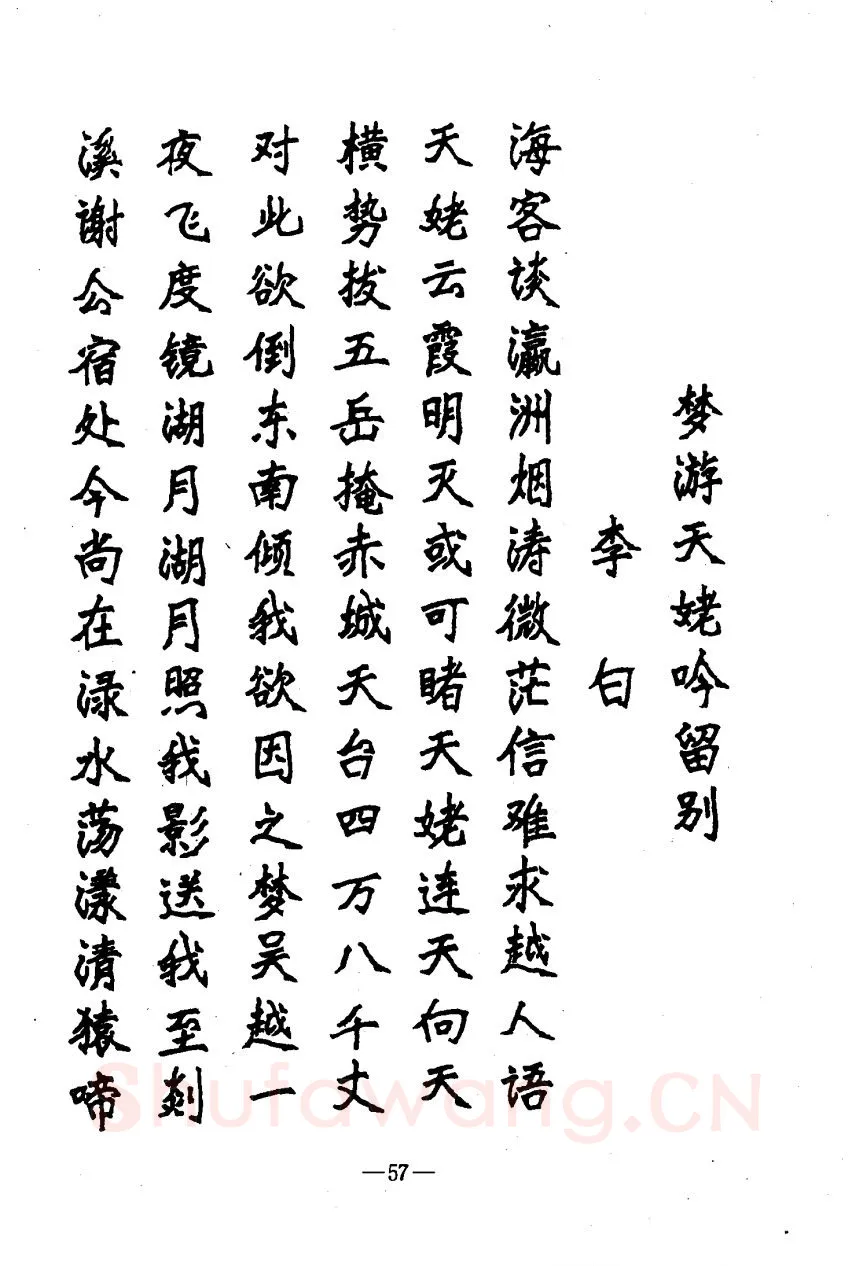 梦游天姥吟留别
李白
海客谈瀛洲烟涛微茫信难求越人语
天姥云霞明灭或可睹天姥连天向天
横势拔五岳掩赤城天台四万八千丈
对此欲倒东南倾我欲因之梦吴越一
夜飞度镜湖月湖月照我影送我至剡
溪谢公宿处今尚在渌水荡漾清猿啼
Shufawang.CN
—57—